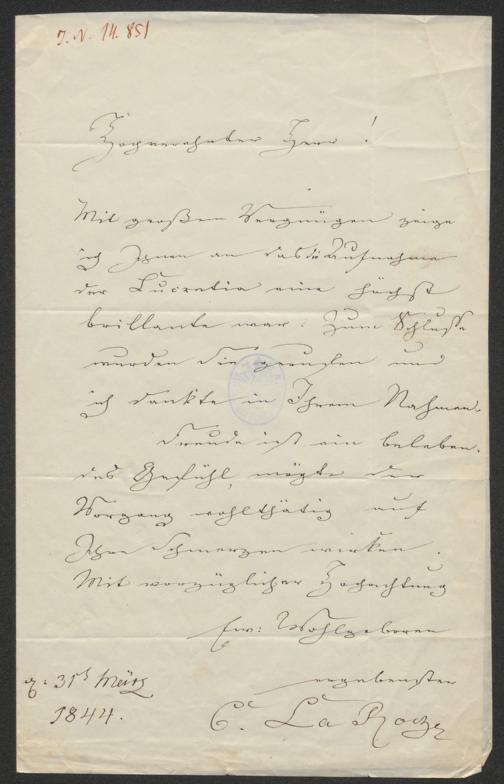 J. N. 14.851
Hochverehrter Herr!
Mit großem Vergnügen zeige
ich Ihnen an das die Aufnahme
der Lucretia eine höchst
brillante war. Zum Schlusse
wurden Sie gerufen und
ich dankte in Ihrem Nahmen.
Freude ist ein beleben-
des Gefühl, mögte der
Vorgang wohlthätig auf
Ihre Schmerzen wirken.
Mit vorzüglicher Hochachtung
Ew: Wohlgeboren
ergebenster
C. La Roche
31t März
1844.